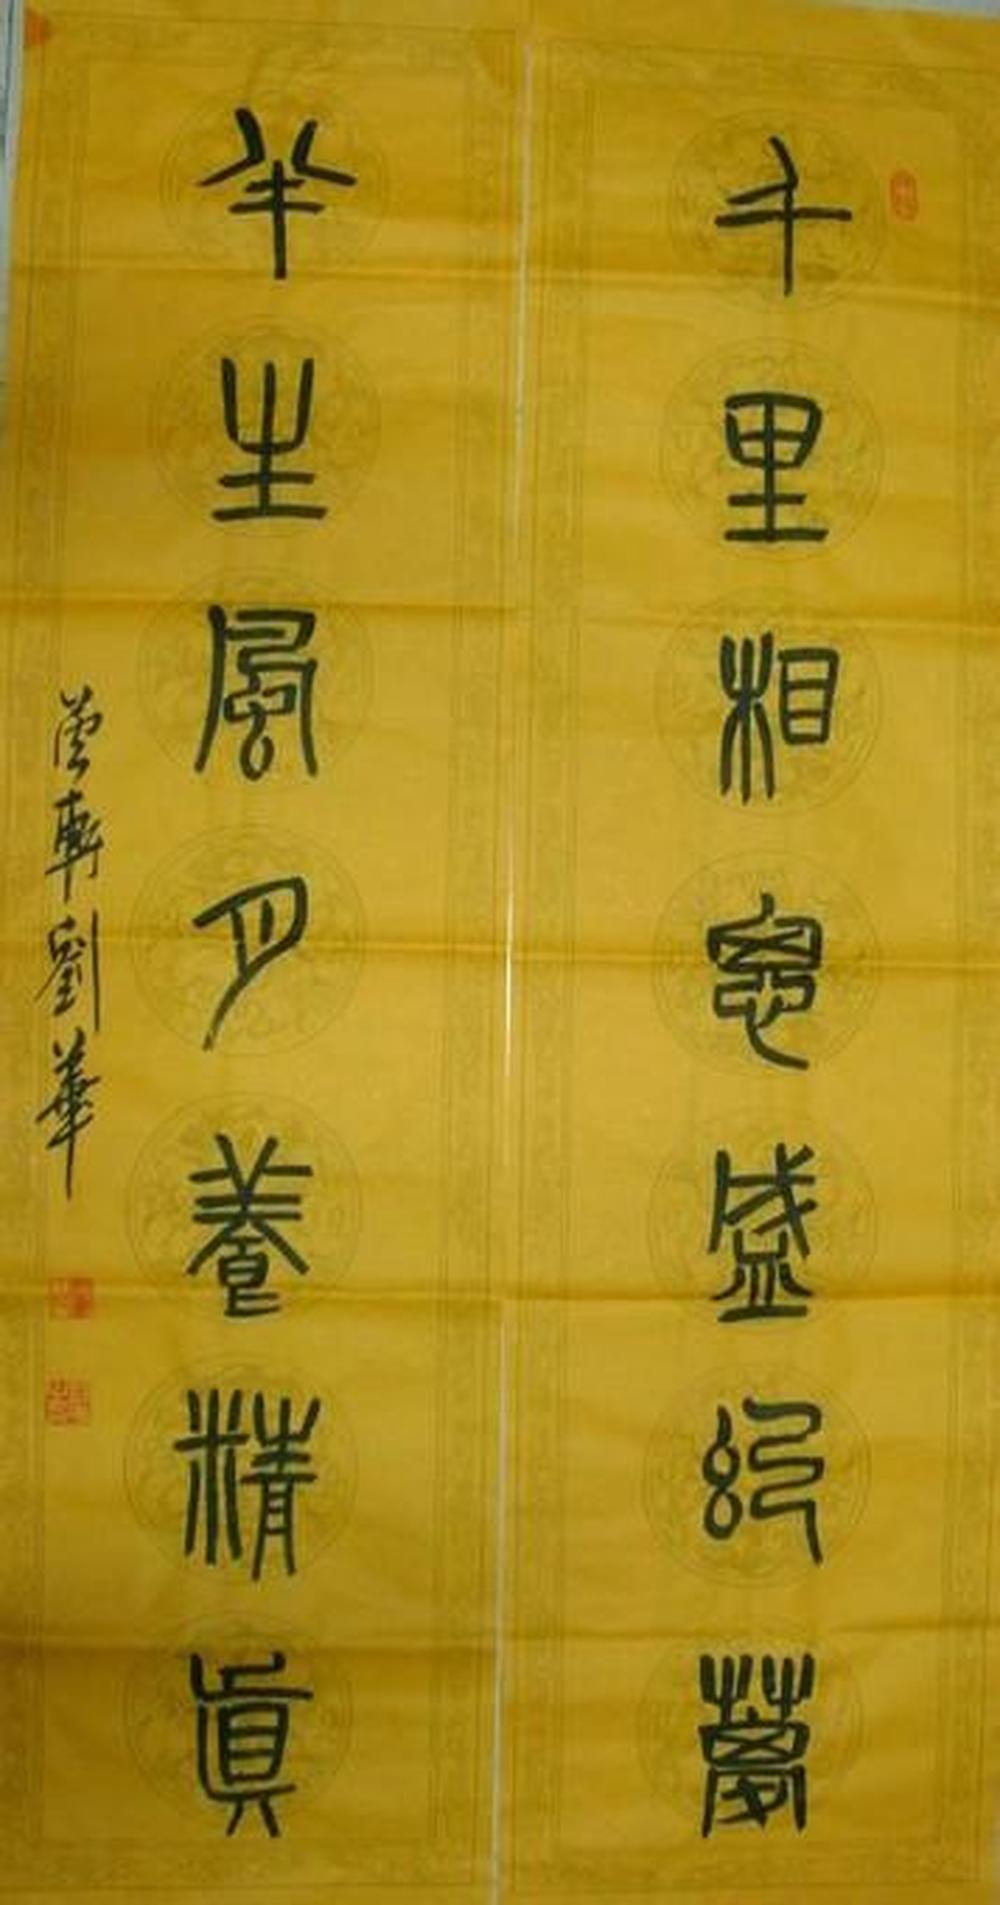 千里相思盛幻夢
半生風月養精真
雲軒劉華